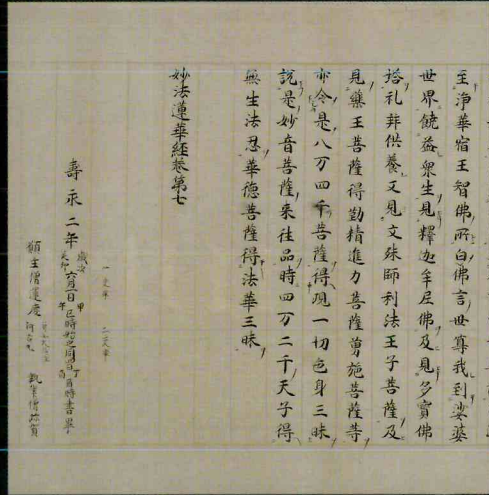 至淨華宿王智佛所白佛言世尊我到娑婆
世界饒益衆生見釋迦牟尼佛及見多寶佛
塔礼拜供養又見文殊師利法王子菩薩及
見藥王菩薩得勤精進力菩薩勇施菩薩等
亦令是八万四千菩薩得現一切色身三昧
說是妙音菩薩來往品時四万二千天子得
無生法忍華德菩薩得法華三昧
妙法蓮華經卷第七
壽永二年
願主僧運慶
執筆僧珎賀